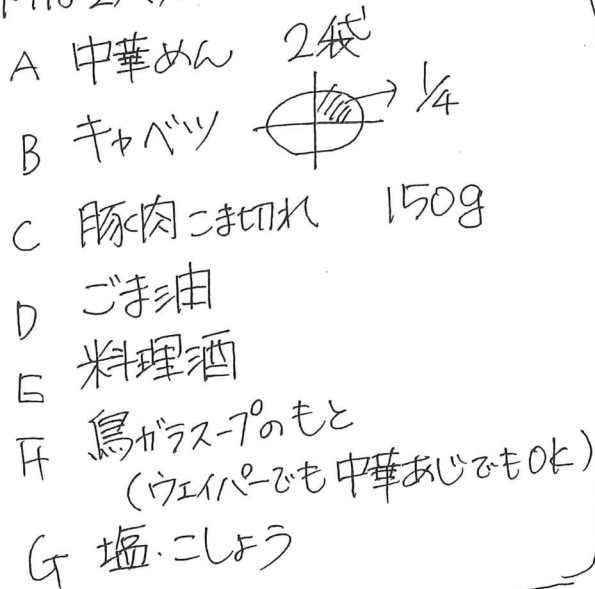 A 中華めん 2袋
B キャベツ 1/4
C 豚肉こま切れ 150g
D ごま油
E 料理酒
F 鳥ガラスープのもと
(ウェイパーでも中華あじでもOK)
G 塩・こしょう